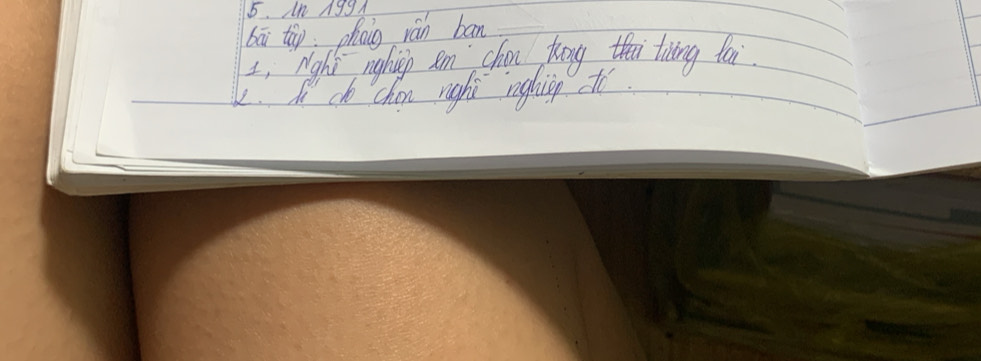 5. in 1991
bài tập: phỏng vấn bạn
1, Nghề nghiệp em chọn trong tương lai.
2. lí do chọn nghề nghiệp đó.